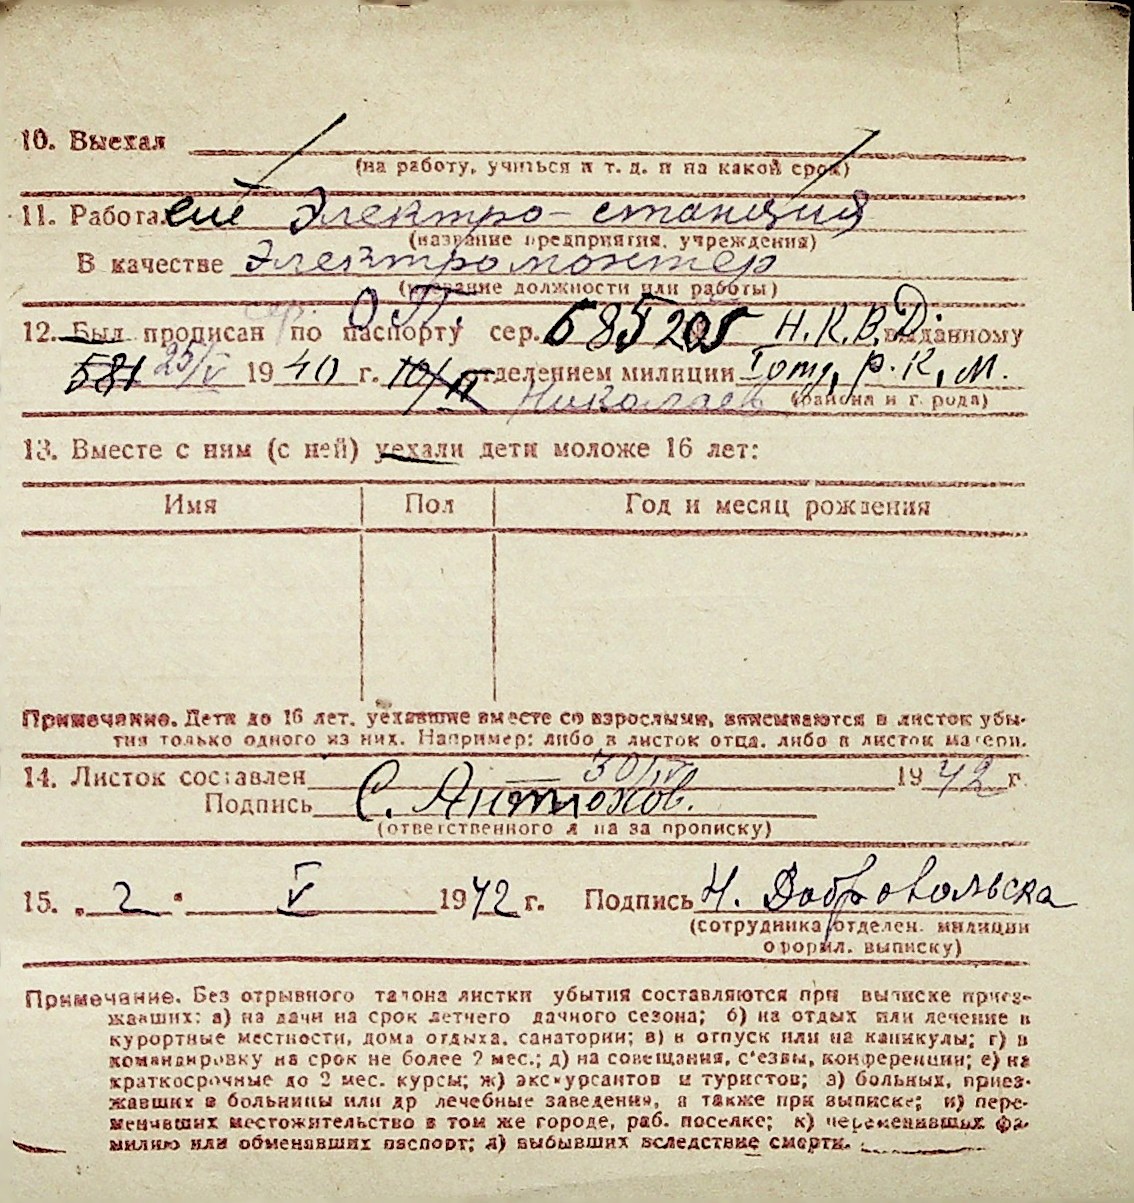 10. Выехал
(на работу, учиться и т. д. и на какой срок)
11. Работал Электро-станция
(название предприятия, учреждения)
В качестве Электромонтер
(название должности или работы)
12. Был прописан по паспорту сер. О П. 685205 Н.К.В.Д. выданному
581 25/V 1940 г. отделением милиции I отд. Р.К.М.
Николаев (района и города)
13. Вместе с ним (с ней) уехали дети моложе 16 лет:
Имя Пол Год и месяц рождения
Примечание. Дети до 16 лет, уехавшие вместе со взрослыми, вписываются в листок убы-
тия только одного из них. Например: либо в листок отца, либо в листок матери.
14. Листок составлен 30/IV 1942 г.
Подпись С. Антюхов.
(ответственного лица за прописку)
15. „ 2 " V 1942 г. Подпись Н. Добровольска
(сотрудника отделен. милиции
оформл. выписку)
Примечание. Без отрывного талона листки убытия составляются при выписке приез-
жавших: а) на дачи на срок летнего дачного сезона; б) на отдых или лечение в
курортные местности, дома отдыха, санатории; в) в отпуск или на каникулы; г) в
командировку на срок не более 2 мес.; д) на совещания, с'езды, конференции; е) на
краткосрочные до 2 мес. курсы; ж) экскурсантов и туристов; з) больных, приез-
жавших в больницы или др лечебные заведения, а также при выписке; и) пере-
менивших местожительство в том же городе, раб. поселке; к) переменивших фа-
милию или обменявших паспорт; л) выбывших вследствие смерти.